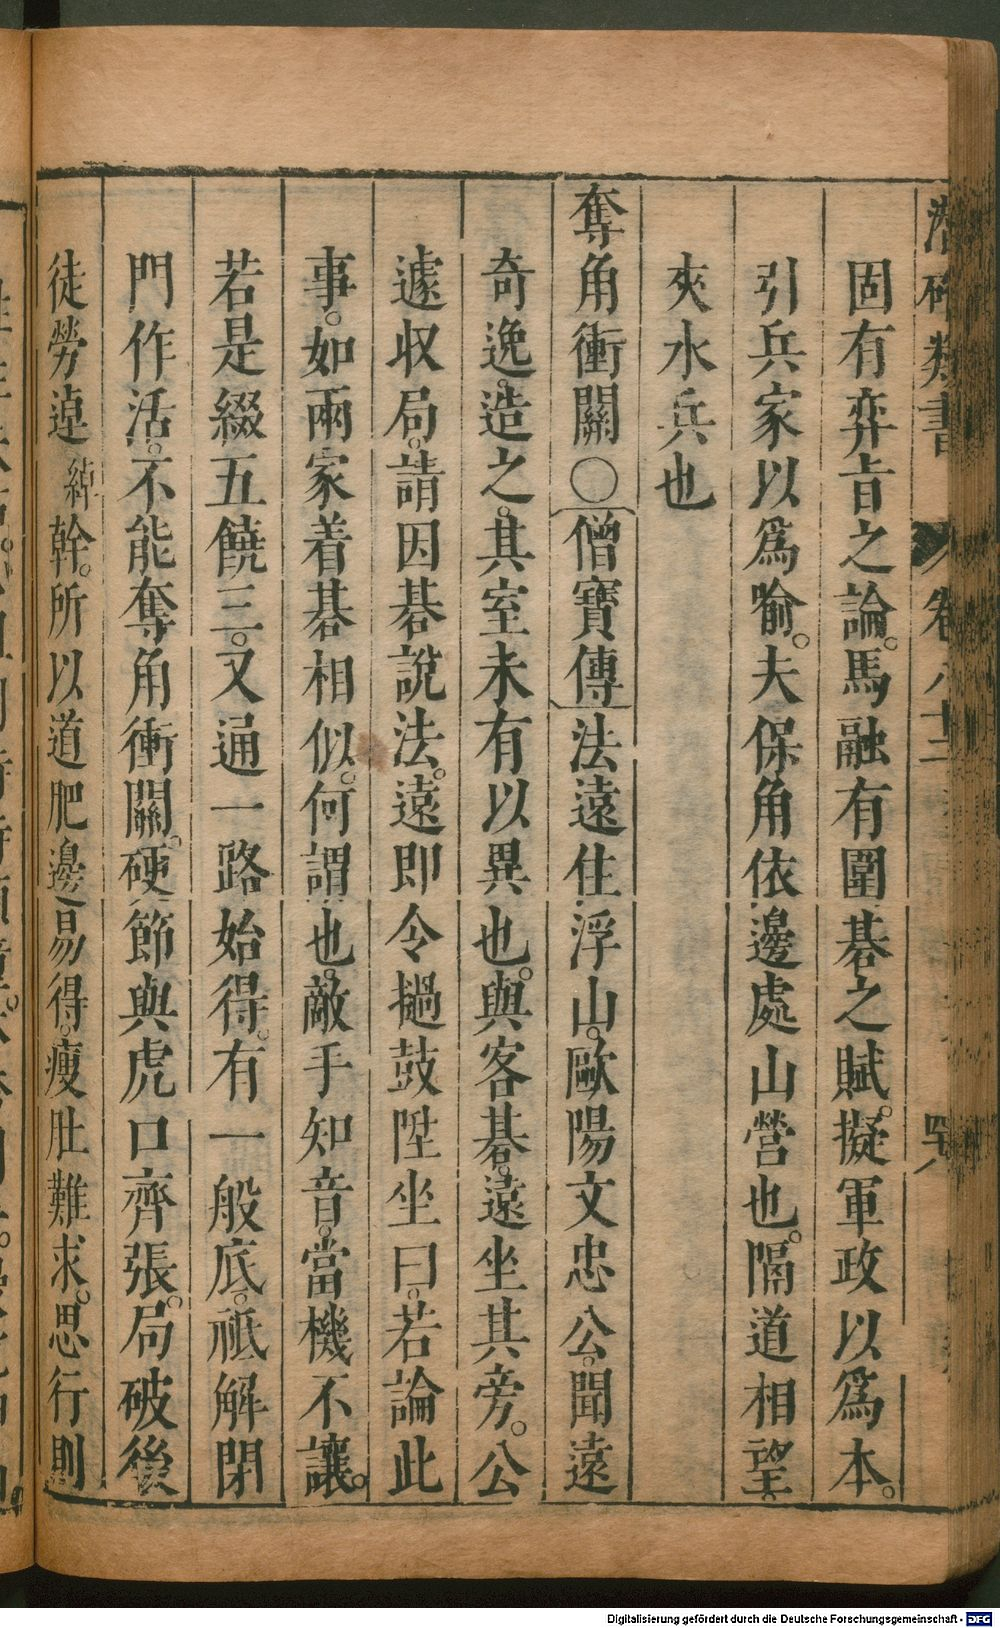 固有弈旨之論。馬融有圍碁之賦。擬軍政以爲本。
引兵家以爲喻。夫保角依邊處山營也。隔道相望。
夾水兵也
奪角衝關〇僧寶傳法遠住浮山。歐陽文忠公。聞遠
奇逸。造之。其室未有以異也。與客碁。遠坐其旁。公
遽収局。請因碁說法。遠即令撾鼓陞坐曰。若論此
事。如兩家着碁相似。何謂也。敵手知音。當機不讓。
若是綴五饒三。又通一路始得。有一般底。祗解閉
門作活。不能奪角衝關。硬節與虎口齊張。局破後
徒勞逴綽幹。所以道肥邊易得。瘦肚難求。思行則
潛確類書 卷八十二
Digitalisierung gefördert durch die Deutsche Forschungsgemeinschaft - DFG